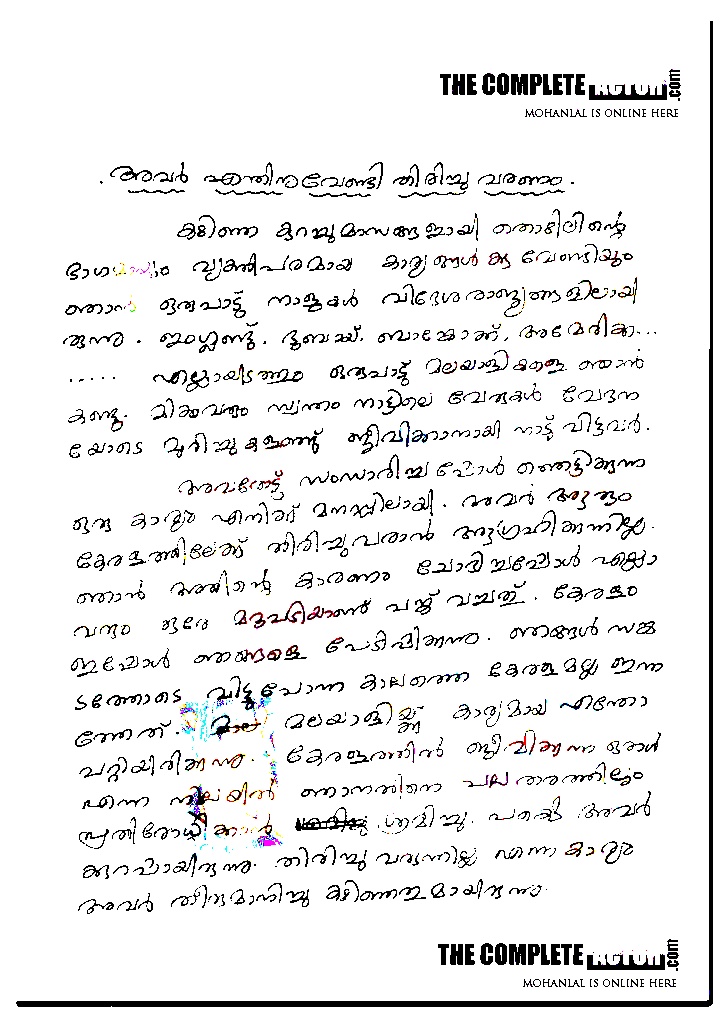 THE COMPLETE ACTOR.com
MOHANLAL IS ONLINE HERE
. അവർ എന്തിനുവേണ്ടി തിരിച്ചു വരണം .
കഴിഞ്ഞ കുറച്ചുമാസങ്ങളായി തൊഴിലിന്റെ
ഭാഗമായും വ്യക്തിപരമായ കാര്യങ്ങൾക്കു വേണ്ടിയും
ഞാൻ ഒരുപാട്ട് നാളുകൾ വിദേശരാജ്യങ്ങളിലായി
രുന്നു . ഇംഗ്ലണ്ട്, ദുബായ്, ബാങ്കോക്ക്, അമേരിക്ക...
..... എല്ലായിടത്തും ഒരുപാട്ട് മലയാളികളെ ഞാൻ
കണ്ടു. മിക്കവരും സ്വന്തം നാട്ടിലെ വേരുകൾ വേദന
യോടെ മുറിച്ചുകളഞ്ഞ് ജീവിക്കാനായി നാട്ട് വിട്ടവർ.
അവരോട്ട് സംസാരിച്ചപ്പോൾ ഞെട്ടിക്കുന്ന
ഒരു കാര്യം എനിക്ക് മനസ്സിലായി . അവർ ആരും
കേരളത്തിലേക്ക് തിരിച്ചുവരാൻ ആഗ്രഹിക്കുന്നില്ല.
ഞാൻ അതിന്റെ കാരണം ചോദിച്ചപ്പോൾ എല്ലാ
വരും ഒരേ മറുപടിയാണ് പങ്ക് വച്ചത് . കേരളം
ഇപ്പോൾ ഞങ്ങളെ പേടിപ്പിക്കുന്നു . ഞങ്ങൾ സങ്ക
ടത്തോടെ വിട്ടുപോന്ന കാലത്തെ കേരളമല്ല ഇന്ന
ത്തേത് . മലയാളിയ്ക്ക് കാര്യമായ എന്തോ
പറ്റിയിരിക്കുന്നു. കേരളത്തിൽ ജീവിക്കുന്ന ഒരാൾ
എന്ന നിലയിൽ ഞാനതിനെ പല തരത്തിലും
പ്രതിരോധിക്കാൻ ശ്രമിച്ചു. പക്ഷെ അവർ
ഉറപ്പായിരുന്നു. തിരിച്ചു വരുന്നില്ല എന്ന കാര്യം
അവർ തീരുമാനിച്ചു കഴിഞ്ഞതുമായിരുന്നു.
THE COMPLETE ACTOR.com
MOHANLAL IS ONLINE HERE